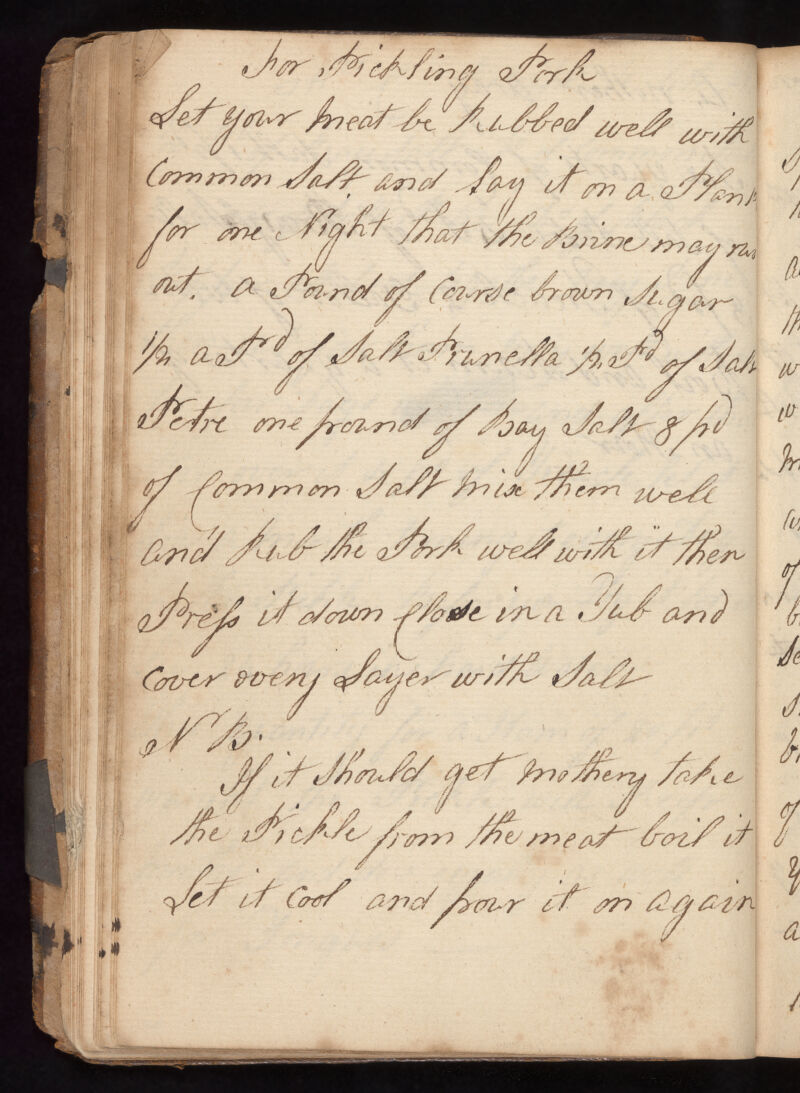 For Pickling Pork
Let your Meat be Rubbed well with
Common Salt and Lay it on a Plank
for one Night that the Brine may run
out. a Pound of Course brown Sugar
1/2 a Prd of Salt Prunella 1/2 Pd of Salt
Petre one pound of Bay Salt 8 pd
of Common Salt Mix them well
and Rub the Pork well with it then
Press it down Close in a Tub and
Cover every Layer with Salt
Nr B.
If it Should get Mothery take
the Pickle from the meat boil it
Let it Cool and pour it on again